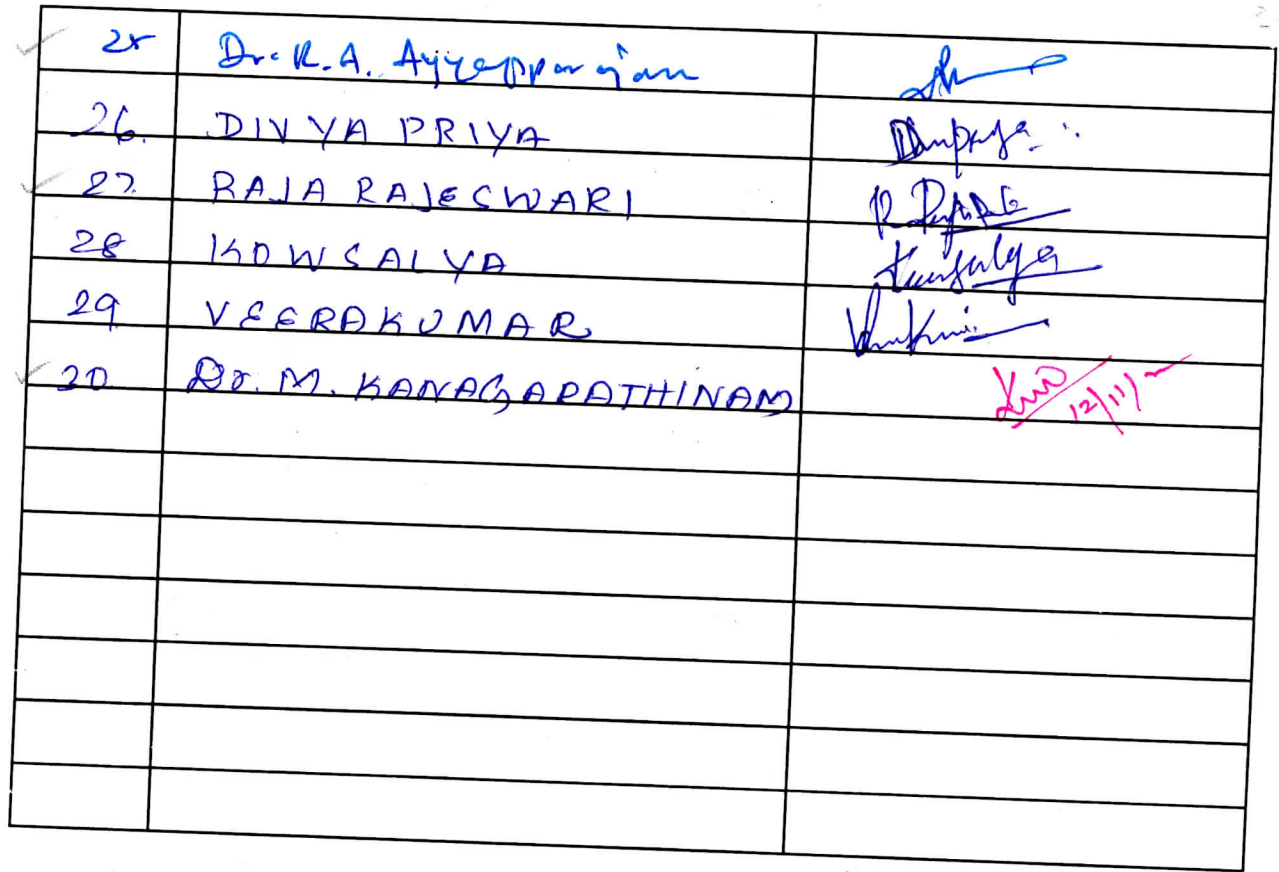 25 Dr. R.A. Ayyapparajan
26. DIVYA PRIYA
27. RAJA RAJESWARI R. Rajara
28 KOWSALYA Kowsalya
29 VEERAKUMAR
30 Dr. M. KANAGARATHINAM 12/11/